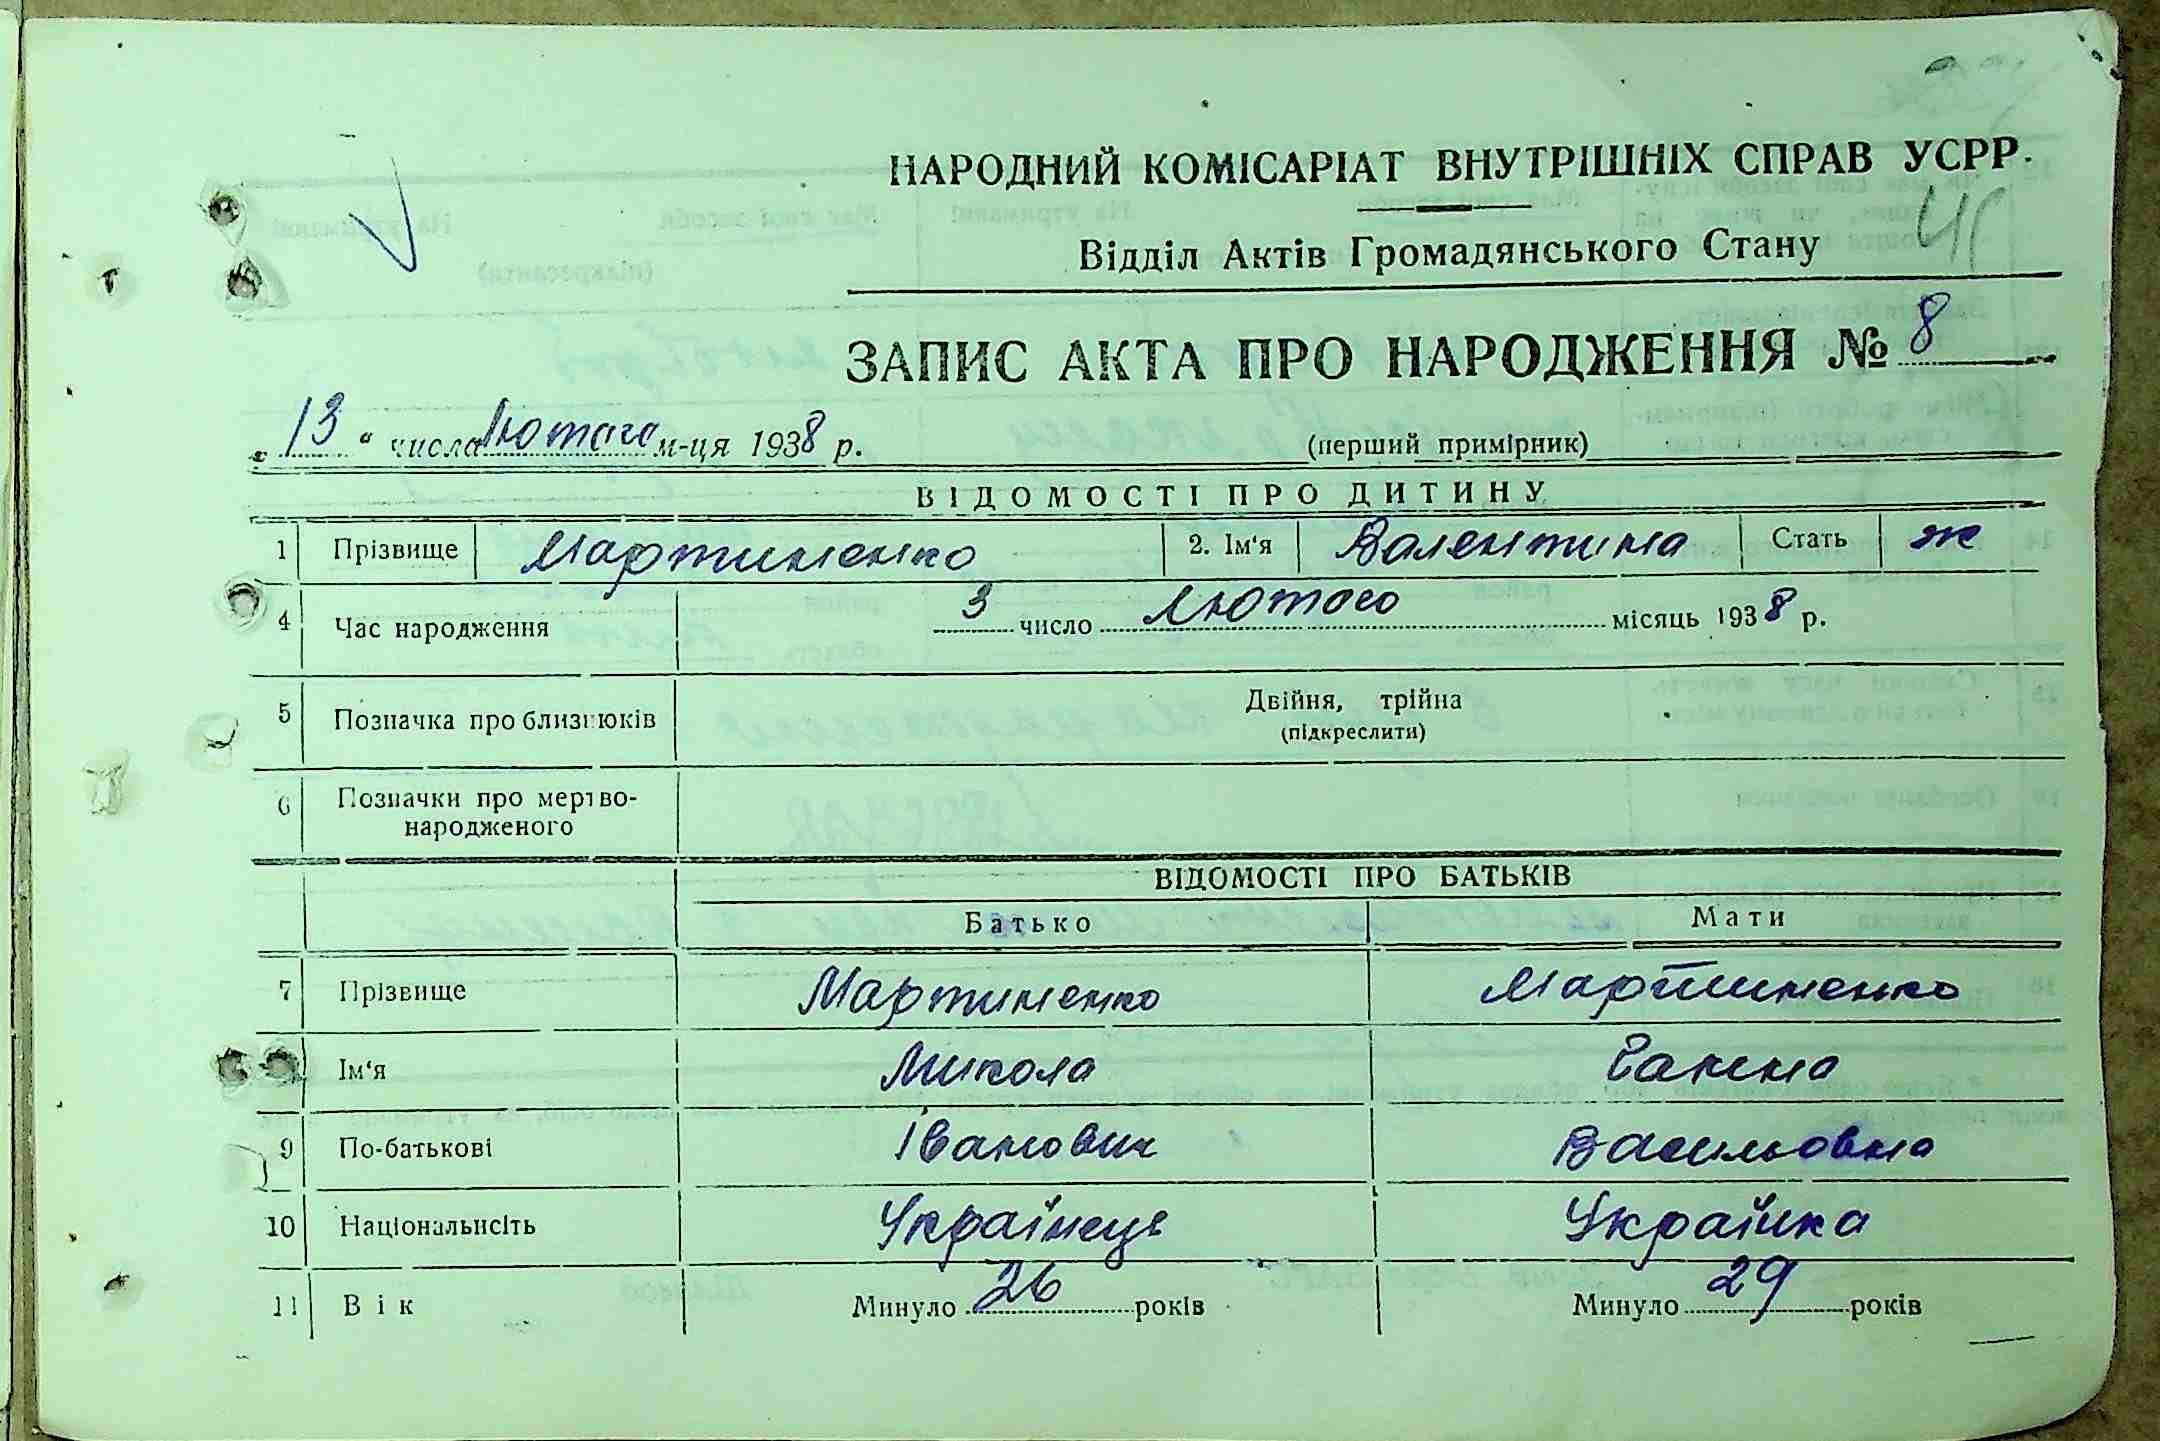 НАРОДНИЙ КОМІСАРІАТ ВНУТРІШНІХ СПРАВ УСРР.
Відділ Актів Громадянського Стану
ЗАПИС АКТА ПРО НАРОДЖЕННЯ № 8
„13“ числа Лютого м-ця 1938 р. (перший примірник)
ВІДОМОСТІ ПРО ДИТИНУ
1 Прізвище Мартиненко 2. Ім'я Валентина Стать ж
4 Час народження 3 число Лютого місяць 1938 р.
5 Позначка про близнюків Двійня, трійна
(підкреслити)
6 Позначки про мертво-
народженого
ВІДОМОСТІ ПРО БАТЬКІВ
Батько Мати
7 Прізвище Мартиненко Мартиненко
Ім'я Микола Ганна
9 По-батькові Іванович Васильовна
10 Національність Українець Українка
11 Вік Минуло 26 років Минуло 29 років